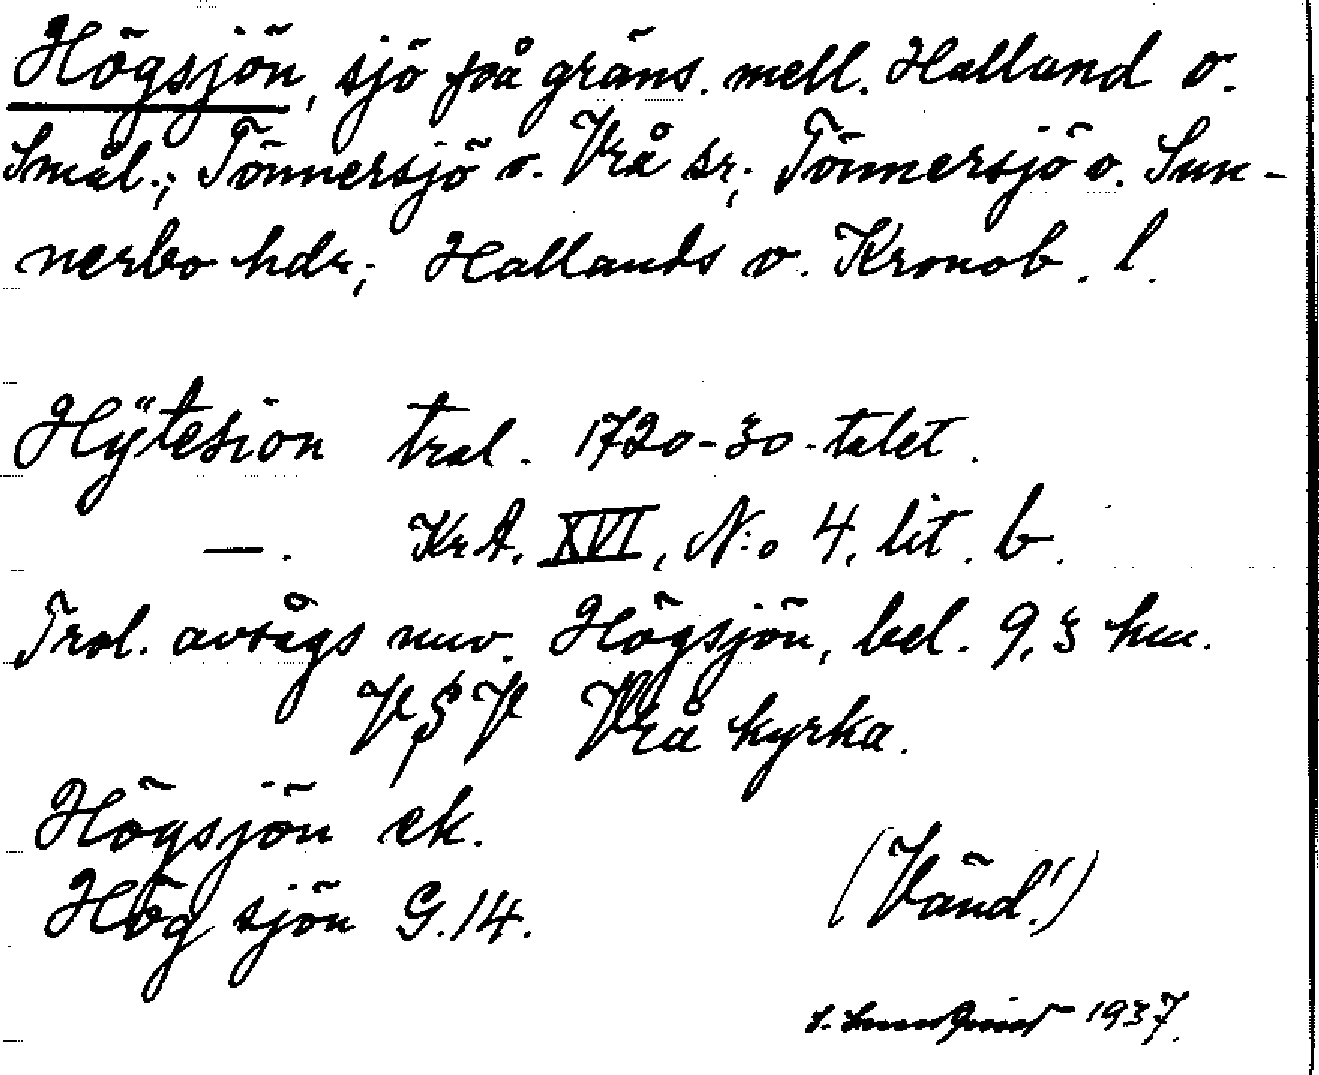 Högsjön, sjö på gräns. mell. Halland o.
Smål.; Tönnersjö o. Vrå sr; Tönnersjö o. Sun-
nerbo hdr; Hallands o. Kronob. l.
Hÿtesion trol. 1720-30-talet.
—. KrA. XVI, N:o 4, lit. b.
Trol. avsågs nuv. Högsjön, bel. 9,3 km.
V Vrå kyrka.
Högsjön ek.
Hög sjön G.14.
(Vänd!)
1937.